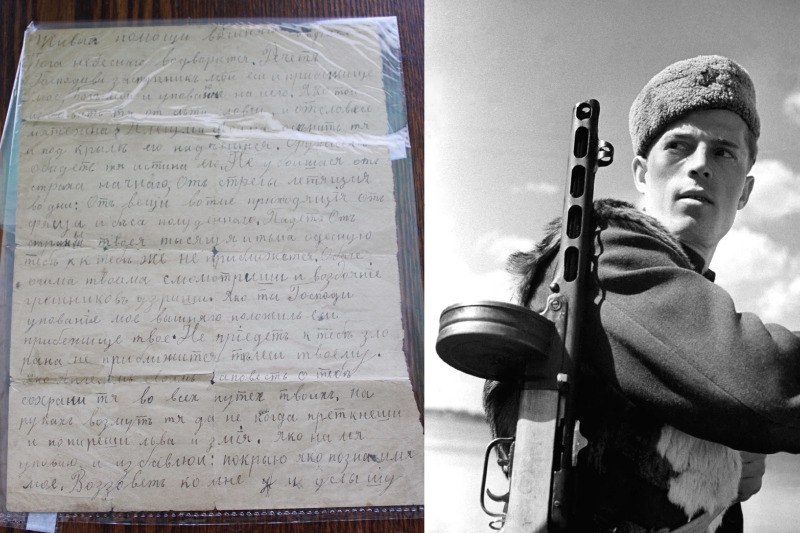 Живыи помощи вышняго
Бога небеснаго водворится. Речетъ
Господеви заступникъ мой еси и прибежище
мое, богъ мой и уповаю на него. Яко той
тя отъ сети ловчи и отъ словесе
мятежна
и под крыле его надеешися.
обыдетъ тя истина его. Не убоишася отъ
страха начнаго, Отъ стрелы летящия
во дни: Отъ вещи во тме приходящия отъ
и беса полуденнаго. Падетъ Отъ
страны твоея тысяща и тьма одесную
тебе к тебе же не приближется. Обаче
очима твоима смотриши и воздояние
грешниковъ узриши. Яко ти Господи
упование мое вышняго положилъ еси
прибежище твое. Не приидетъ к тебе зло
рана не приближится телеси твоему.
Яко заповесть о тебе
сохрани тя во всех путех твоихъ, на
рукахъ возмутъ тя да не когда преткнеши
и попиреши лва и змiя. Яко на мя
упова, и избавлюи: покрыю яко позна имя
мое. Воззоветь ко мне и услышу